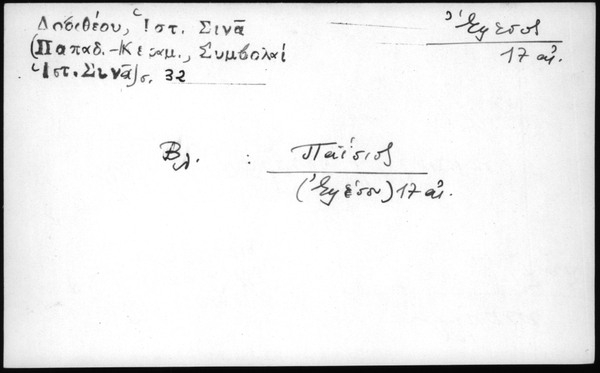 Δοσιθέου, Ἱστ. Σινᾶ
(Παπαδ.-Κεραμ., Συμβολαί
Ἱστ. Σινᾶ) σ. 32
Ἔφεσος
17 αἰ.
Βλ. : Παΐσιος
(Ἐφέσου) 17 αἰ.